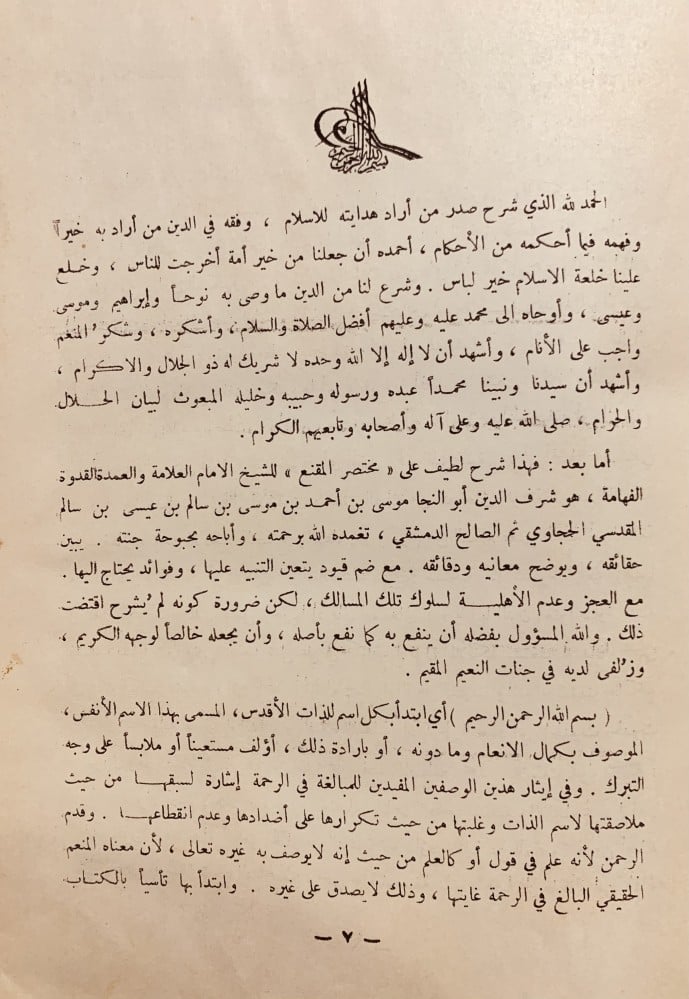 بسم الله الرحمن الرحيم
الحمد لله الذي شرح صدر من أراد هدايته للاسلام ، وفقه في الدين من أراد به خيراً
وفهمه فيما أحكمه من الأحكام ، أحمده أن جعلنا من خير أمة أخرجت للناس ، وخلع
علينا خلعة الاسلام خير لباس . وشرع لنا من الدين ما وصى به نوحاً وإبراهيم وموسى
وعيسى ، وأوحاه الى محمد عليه وعليهم أفضل الصلاة والسلام ، وأشكره ، وشكرُ المنعم
واجب على الأنام ، وأشهد أن لا إله إلا الله وحده لا شريك له ذو الجلال والاكرام ،
وأشهد أن سيدنا ونبينا محمداً عبده ورسوله وحبيبه وخليله المبعوث لبيان الحلال
والحرام ، صلى الله عليه وعلى آله وأصحابه وتابعيهم الكرام .
أما بعد : فهذا شرح لطيف على « مختصر المقنع » للشيخ الامام العلامة والعمدة القدوة
الفهامة ، هو شرف الدين أبو النجا موسى بن أحمد بن موسى بن سالم بن عيسى بن سالم
المقدسي الحجاوي ثم الصالح الدمشقي ، تغمده الله برحمته ، وأباحه بحبوحة جنته . يبين
حقائقه ، ويوضح معانيه ودقائقه . مع ضم قيود يتعين التنبيه عليها ، وفوائد يحتاج اليها .
مع العجز وعدم الأهلية لسلوك تلك المسالك ، لكن ضرورة كونه لم يُشرح اقتضت
ذلك . والله المسؤول بفضله أن ينفع به كما نفع بأصله ، وأن يجعله خالصاً لوجهه الكريم ،
وزُلفى لديه في جنات النعيم المقيم .
( بسم الله الرحمن الرحيم ) أي ابتدأ بكل اسم للذات الأقدس ، المسمى بهذا الاسم الأنفس ،
الموصوف بكمال الانعام وما دونه ، أو بارادة ذلك ، أؤلف مستعيناً أو ملابساً على وجه
التبرك . وفي إيثار هذين الوصفين المفيدين للمبالغة في الرحمة إشارة لسبقها من حيث
ملاصقتها لاسم الذات وغلبتها من حيث تكرارها على أضدادها وعدم انقطاعها . وقدم
الرحمن لأنه علم في قول أو كالعلم من حيث إنه لا يوصف به غيره تعالى ، لأن معناه المنعم
الحقيقي البالغ في الرحمة غايتها ، وذلك لا يصدق على غيره . وابتدأ بها تأسياً بالكتاب
– ٧ –